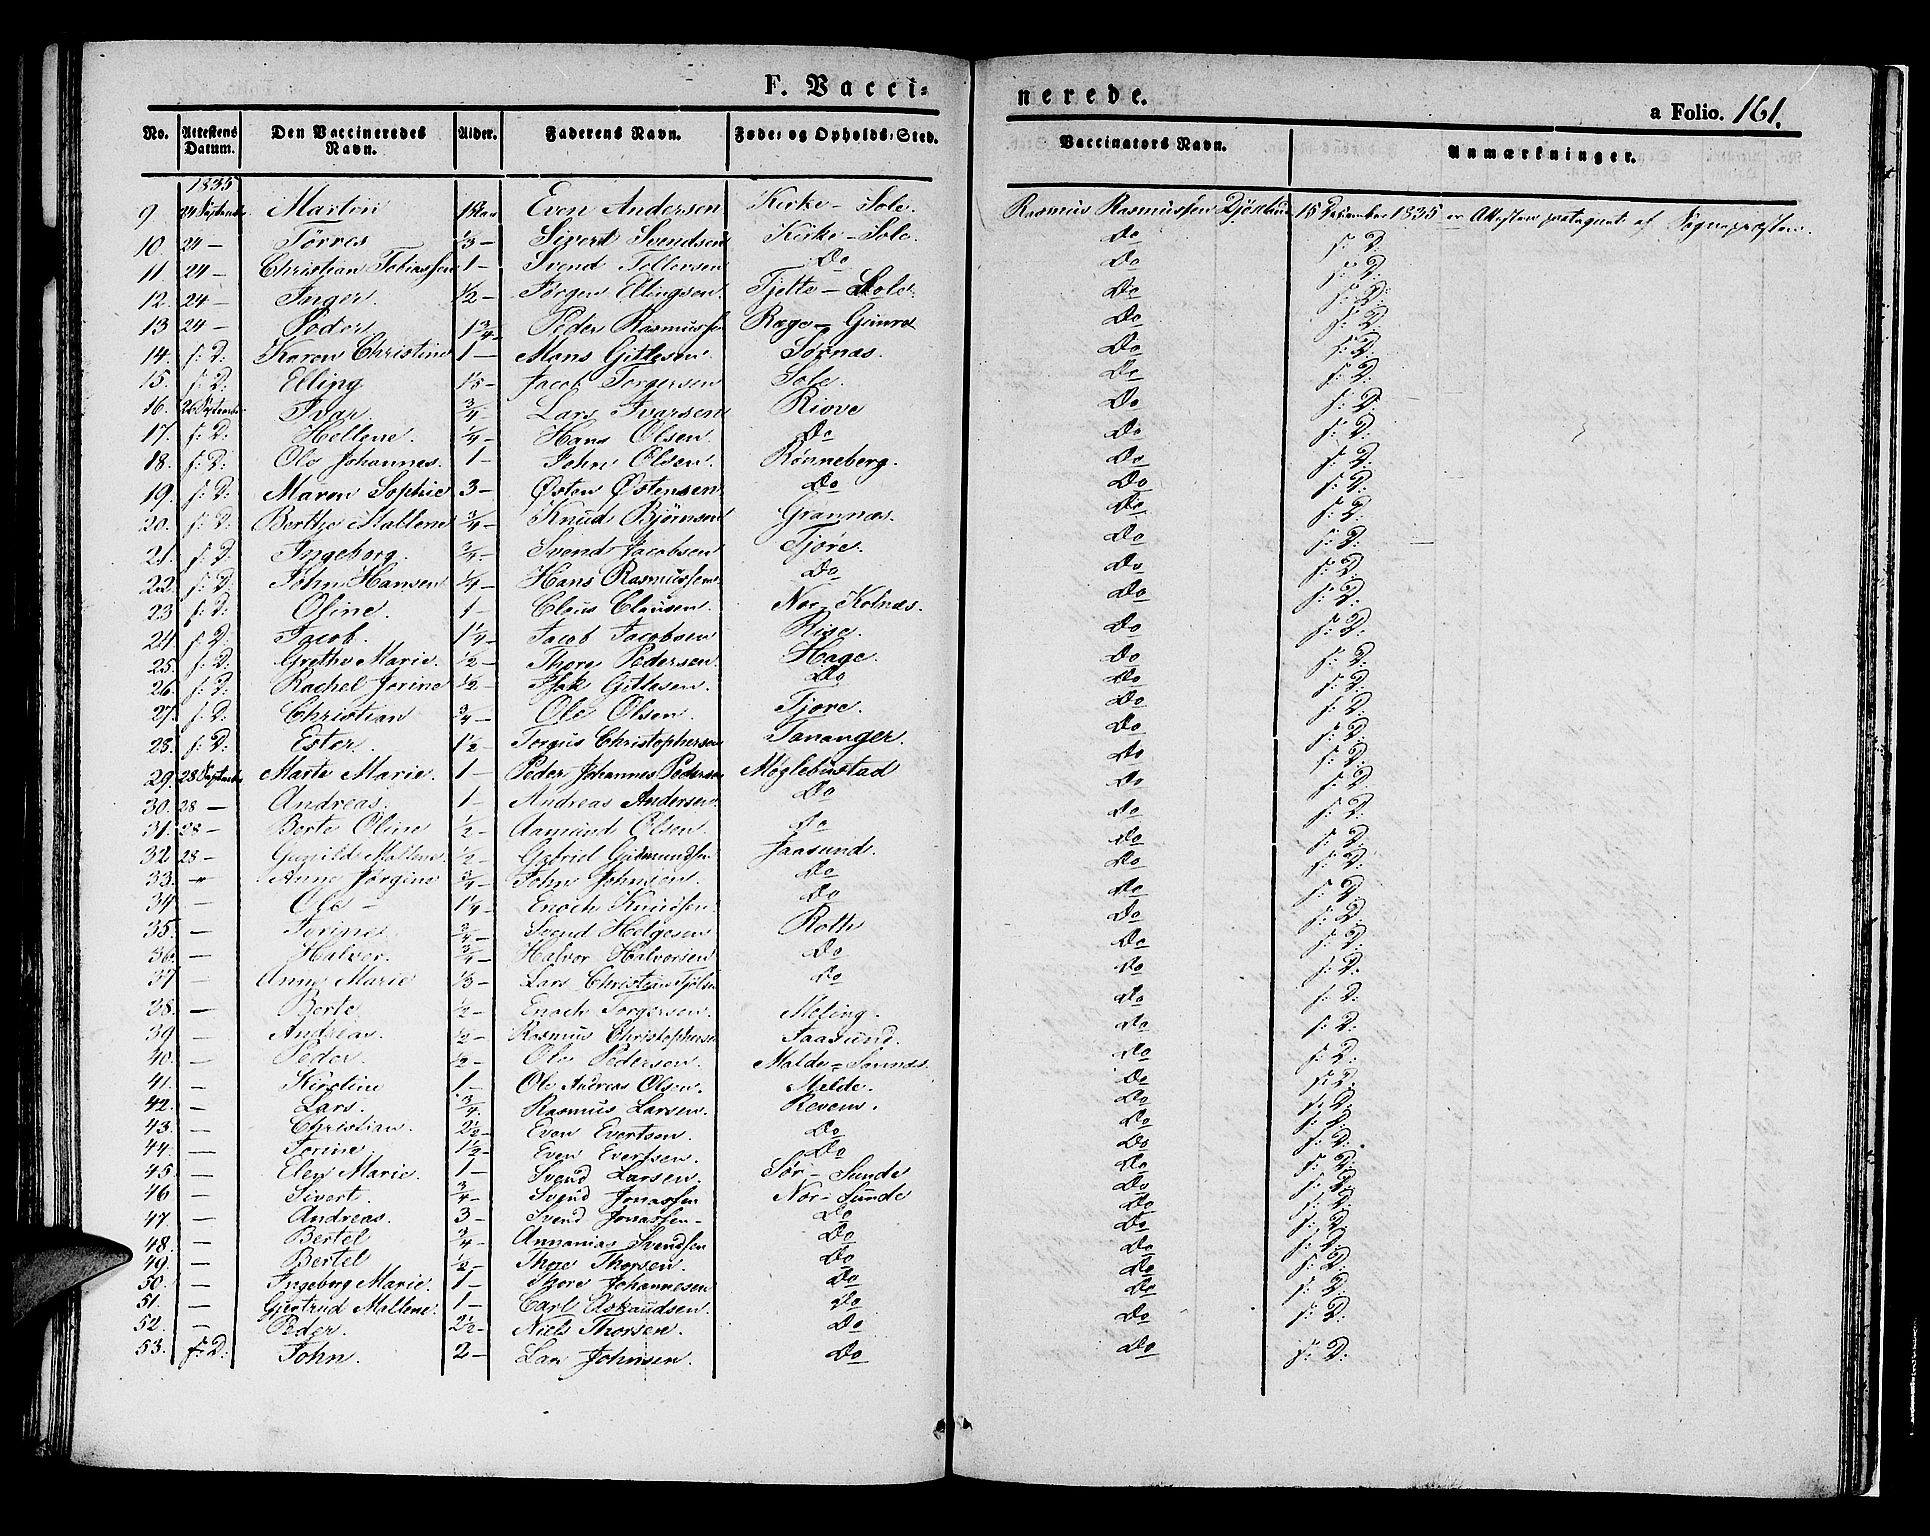 F. Vacci=
nerede.
a Folio. 161.
No. Attestens Datum. Den Vaccineredes Navn. Alder. Faderens Navn. Føde= og Opholds=Sted. Vaccinators Navn. Anmærkninger.
1835
9 24 Septembr. Martin 1 Aar Even Andersen Kirke-Sole. Rasmus Rasmussen 15 December 1835 er Attesten modtaget af Sognepræsten.
10. 24 — Tørres 1/3 — Sivert Svendsen Kirke-Sole. Do f: D:
11. 24 — Christian Tobiassen 1 — Svend Tollersen Do Do f: D:
12. 24 — Inger. 1/2 — Jørgen Ellingsen. Tjelte-Sole. Do f: D:
13 24 — Peder 1 3/4 — Peder Rasmussen Rage- Do f: D:
14. f: D: Karen Christine 1 — Mons Gitlesen. Sørnæs. Do f: D:
15. f: D: Elling 1/5 — Jacob Torgersen Sole. Do f: D:
16. 26 Septembr. Ivar 3/4 — Lars Ivarsen Do f: D:
17. f: D: Hellene. 1/4 — Hans Olsen. Do Do f: D:
18. f: D: Ole Johannes. 1 — John Olsen. Rønneberg. Do f: D:
19. f: D: Maren Sophie 3 — Østen Østensen Do Do f: D:
20. f: D: Berthe Mallene 3/4 — Knud Bjørnsen Grannæs. Do f: D:
21. f: D: Ingeborg. 3/4 — Svend Jacobsen Tjøre. Do f: D:
22. f: D: John Hansen 1/4 — Hans Rasmussen Do Do f: D:
23 f: D: Oline. 1 — Claus Clausen. Nor-Kolnæs. Do f: D:
24. f: D: Jacob. 1 1/4 — Jacob Jacobsen Rise. Do f: D:
25. f: D: Grethe Marie. 1/2 — Thore Pedersen. Hage. Do f: D:
26. f: D: Rachel Jorine 1/2 — Isak Gitlesen. Do Do f: D:
27. f: D: Christian 3/4 — Ole Olsen. Tjore. Do f: D:
28. f: D: Ester. 1 1/2 — Torgus Christophersen Tananger. Do f: D:
29. 28 Septembr Marte Marie. 1 — Peder Johannes Pedersen Møglebustad Do f: D:
30. 28 — Andreas. 1 — Andreas Andersen. Do Do f: D:
31. 28 — Berte Oline 1/2 — Aamund Olsen. Do Do f: D:
32 28 — Gunild Mallene. 1/2 — Gabriel Gudmundsen Jaasund. Do f: D:
33. " Anne Jørgine 3/4 — John Johnsen. Do Do f: D:
34 — Ole — 1 1/4 — Enoch Knudsen. Do Do f: D:
35. — Jorine 3/4 — Svend Helgesen Roth Do f: D:
36. — Halvor. 3/4 — Halvor Halvorsen Do Do f: D:
37 — Anne Marie 1/3 — Lars Christian Do Do f: D:
38. — Berte 1/2 — Enoch Torgersen. Meling. Do f: D:
39. — Andreas. 1/2 — Rasmus Christophersen Jaasund. Do f: D:
40. — Peder. 1/2 — Ole Pedersen. Malde= Do f: D:
41. — Kirstine 1 — Ole Andreas Olsen. Melde. Do f: D:
42. — Lars. 3/4 Rasmus Larsen. Revem. Do f: D:
43. — Christian. 2 1/2 — Even Evertsen. Do Do f: D:
44. — Jorine 1 1/2 — Even Evertsen. Do Do f: D:
45. — Elen Marie. 1 — Svend Larsen. Sør-Sunde Do f: D:
46 — Sivert. 3/4 — Svend Jonassen Nor-Sunde Do f: D:
47. — Andreas. 3 — Svend Jonassen— Do Do f: D:
48. — Bertel 3/4 — Annanias Svendsen Do Do f: D:
49. — Bertel 1/2 — Thore Thorsen. Do Do f: D:
50. — Ingeborg Marie. 1 — Thore Johannesen Do Do f: D:
51. — Gjertrud Mallene. 1 — Carl Do Do f: D:
52. — Peder. 2 1/2 — Niels Thorsen. Do Do f: D:
53. f: D: John. 2 — Lars Johnsen. Do Do f: D: